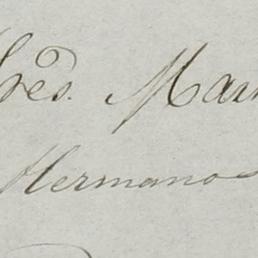 Sres. Mar
Hermanos